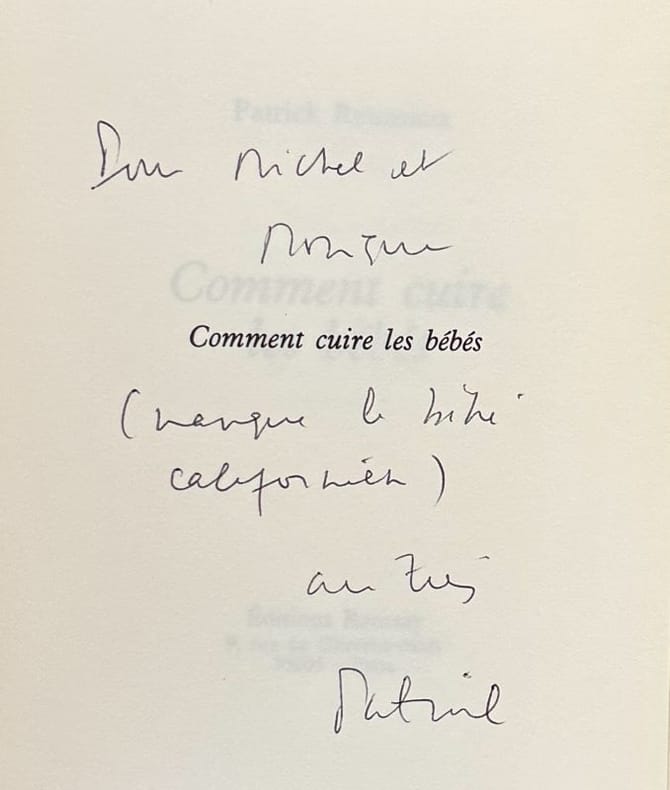 Pour Michel et
Monique
Comment cuire les bébés
(manque le bébé
californien)
Patrick